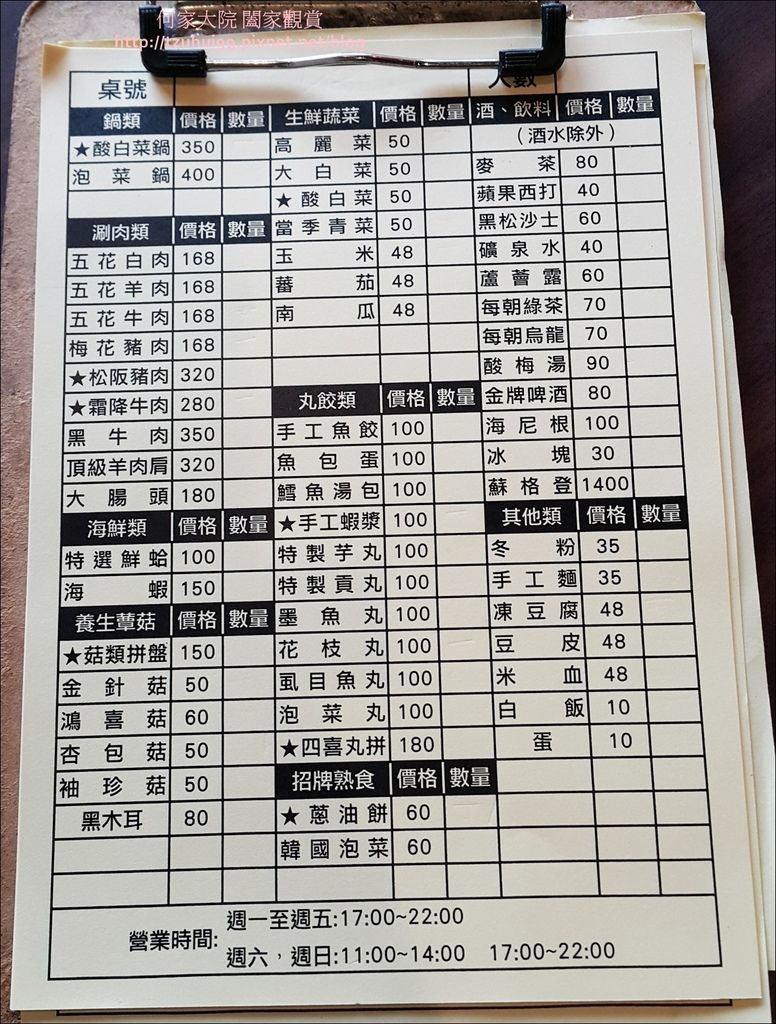 何家大院 闔家觀賞
桌號
人數
鍋類 價格 數量
★酸白菜鍋 350
泡菜鍋 400
涮肉類 價格 數量
五花白肉 168
五花羊肉 168
五花牛肉 168
梅花豬肉 168
★松阪豬肉 320
★霜降牛肉 280
黑牛肉 350
頂級羊肉肩 320
大腸頭 180
海鮮類 價格 數量
特選鮮蛤 100
海蝦 150
養生蕈菇 價格 數量
★菇類拼盤 150
金針菇 50
鴻喜菇 60
杏包菇 50
袖珍菇 50
黑木耳 80
生鮮蔬菜 價格 數量
高麗菜 50
大白菜 50
★酸白菜 50
當季青菜 50
玉米 48
蕃茄 48
南瓜 48
丸餃類 價格 數量
手工魚餃 100
魚包蛋 100
鱈魚湯包 100
★手工蝦漿 100
特製芋丸 100
特製貢丸 100
墨魚丸 100
花枝丸 100
虱目魚丸 100
泡菜丸 100
★四喜丸拼 180
招牌熟食 價格 數量
★蔥油餅 60
韓國泡菜 60
酒、飲料 價格 數量
(酒水除外)
麥茶 80
蘋果西打 40
黑松沙士 60
礦泉水 40
蘆薈露 60
每朝綠茶 70
每朝烏龍 70
酸梅湯 90
金牌啤酒 80
海尼根 100
冰塊 30
蘇格登 1400
其他類 價格 數量
冬粉 35
手工麵 35
凍豆腐 48
豆皮 48
米血 48
白飯 10
蛋 10
營業時間:
週一至週五:17:00~22:00
週六,週日:11:00~14:00 17:00~22:00